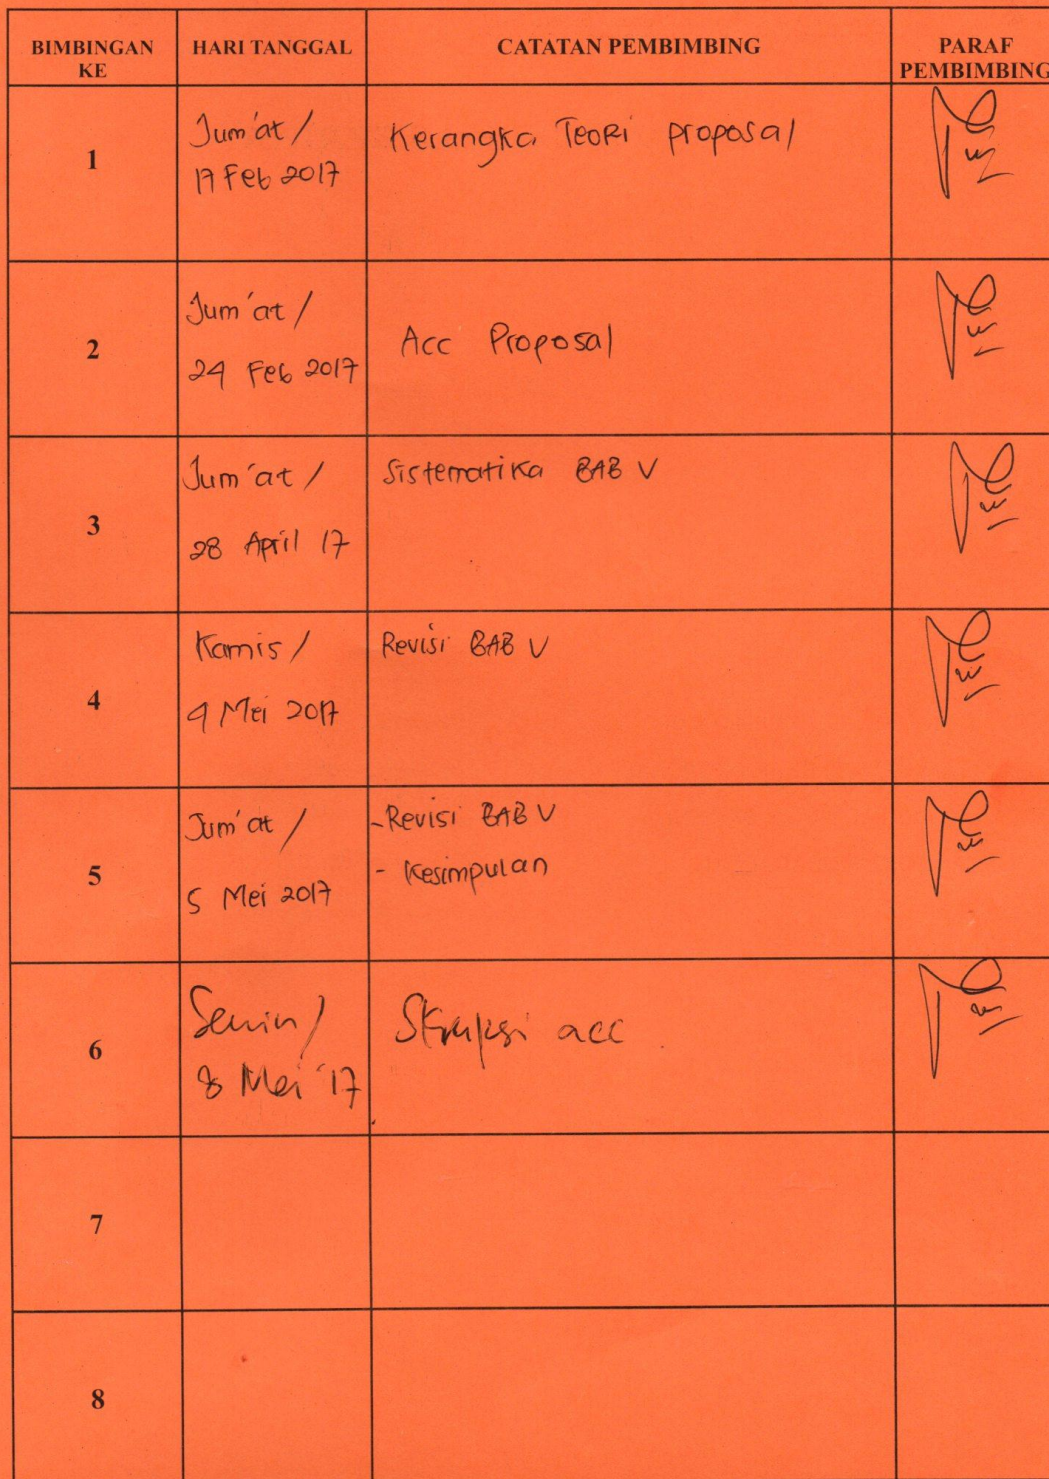 BIMBINGAN KE
HARI TANGGAL
CATATAN PEMBIMBING
PARAF PEMBIMBING
1
Jum'at /
17 Feb 2017
Kerangka Teori proposal
2
Jum'at /
24 Feb 2017
Acc Proposal
3
Jum'at /
28 April 17
Sistematika BAB V
4
Kamis /
4 Mei 2017
Revisi BAB V
5
Jum'at /
5 Mei 2017
- Revisi BAB V
- Kesimpulan
6
Senin /
8 Mei '17
Skripsi acc
7
8